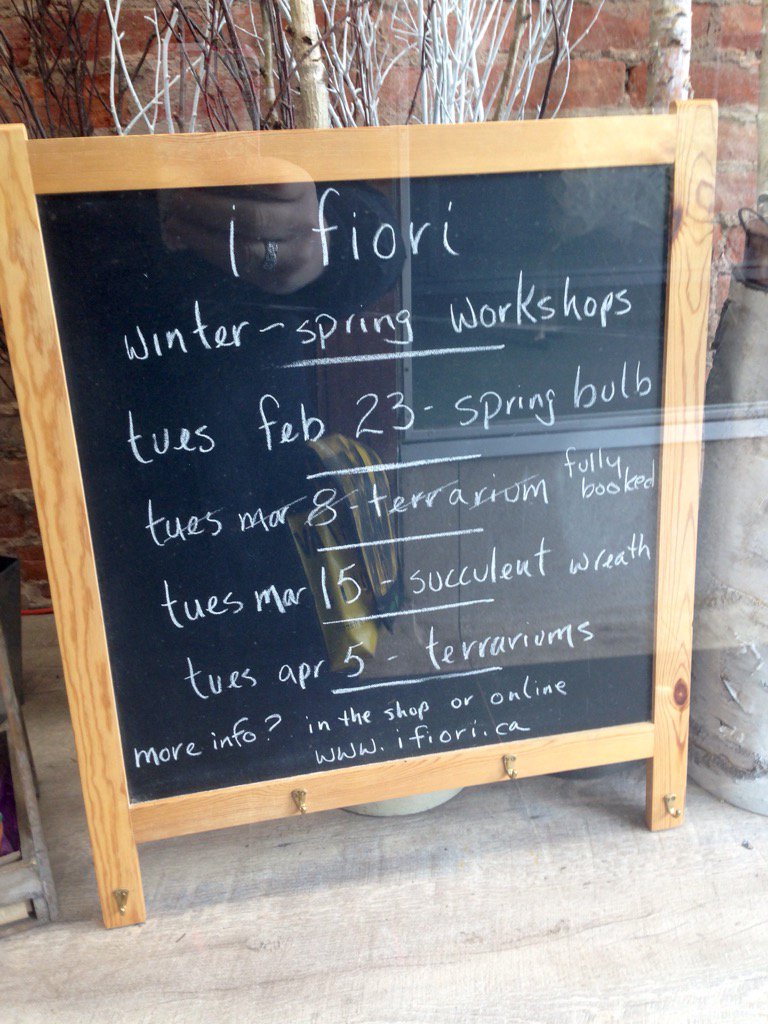 i fiori
winter - spring workshops
tues feb 23 - spring bulb
tues mar 8 - terrarium fully booked
tues mar 15 - succulent wreath
tues apr 5 - terrariums
more info? in the shop or online
www.ifiori.ca